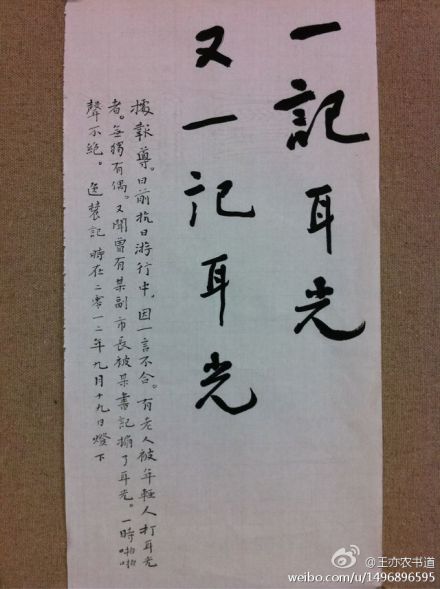 一記耳光
又一记耳光
據報導。日前抗日游行中，因一言不合。有老人被年輕人打耳光
者。無獨有偶。又聞曾有某副市長被某書記搧了耳光。一時啪啪
聲不絕。記 時在二零一二年九月十九日燈下
@王亦农书道
weibo.com/u/1496896595